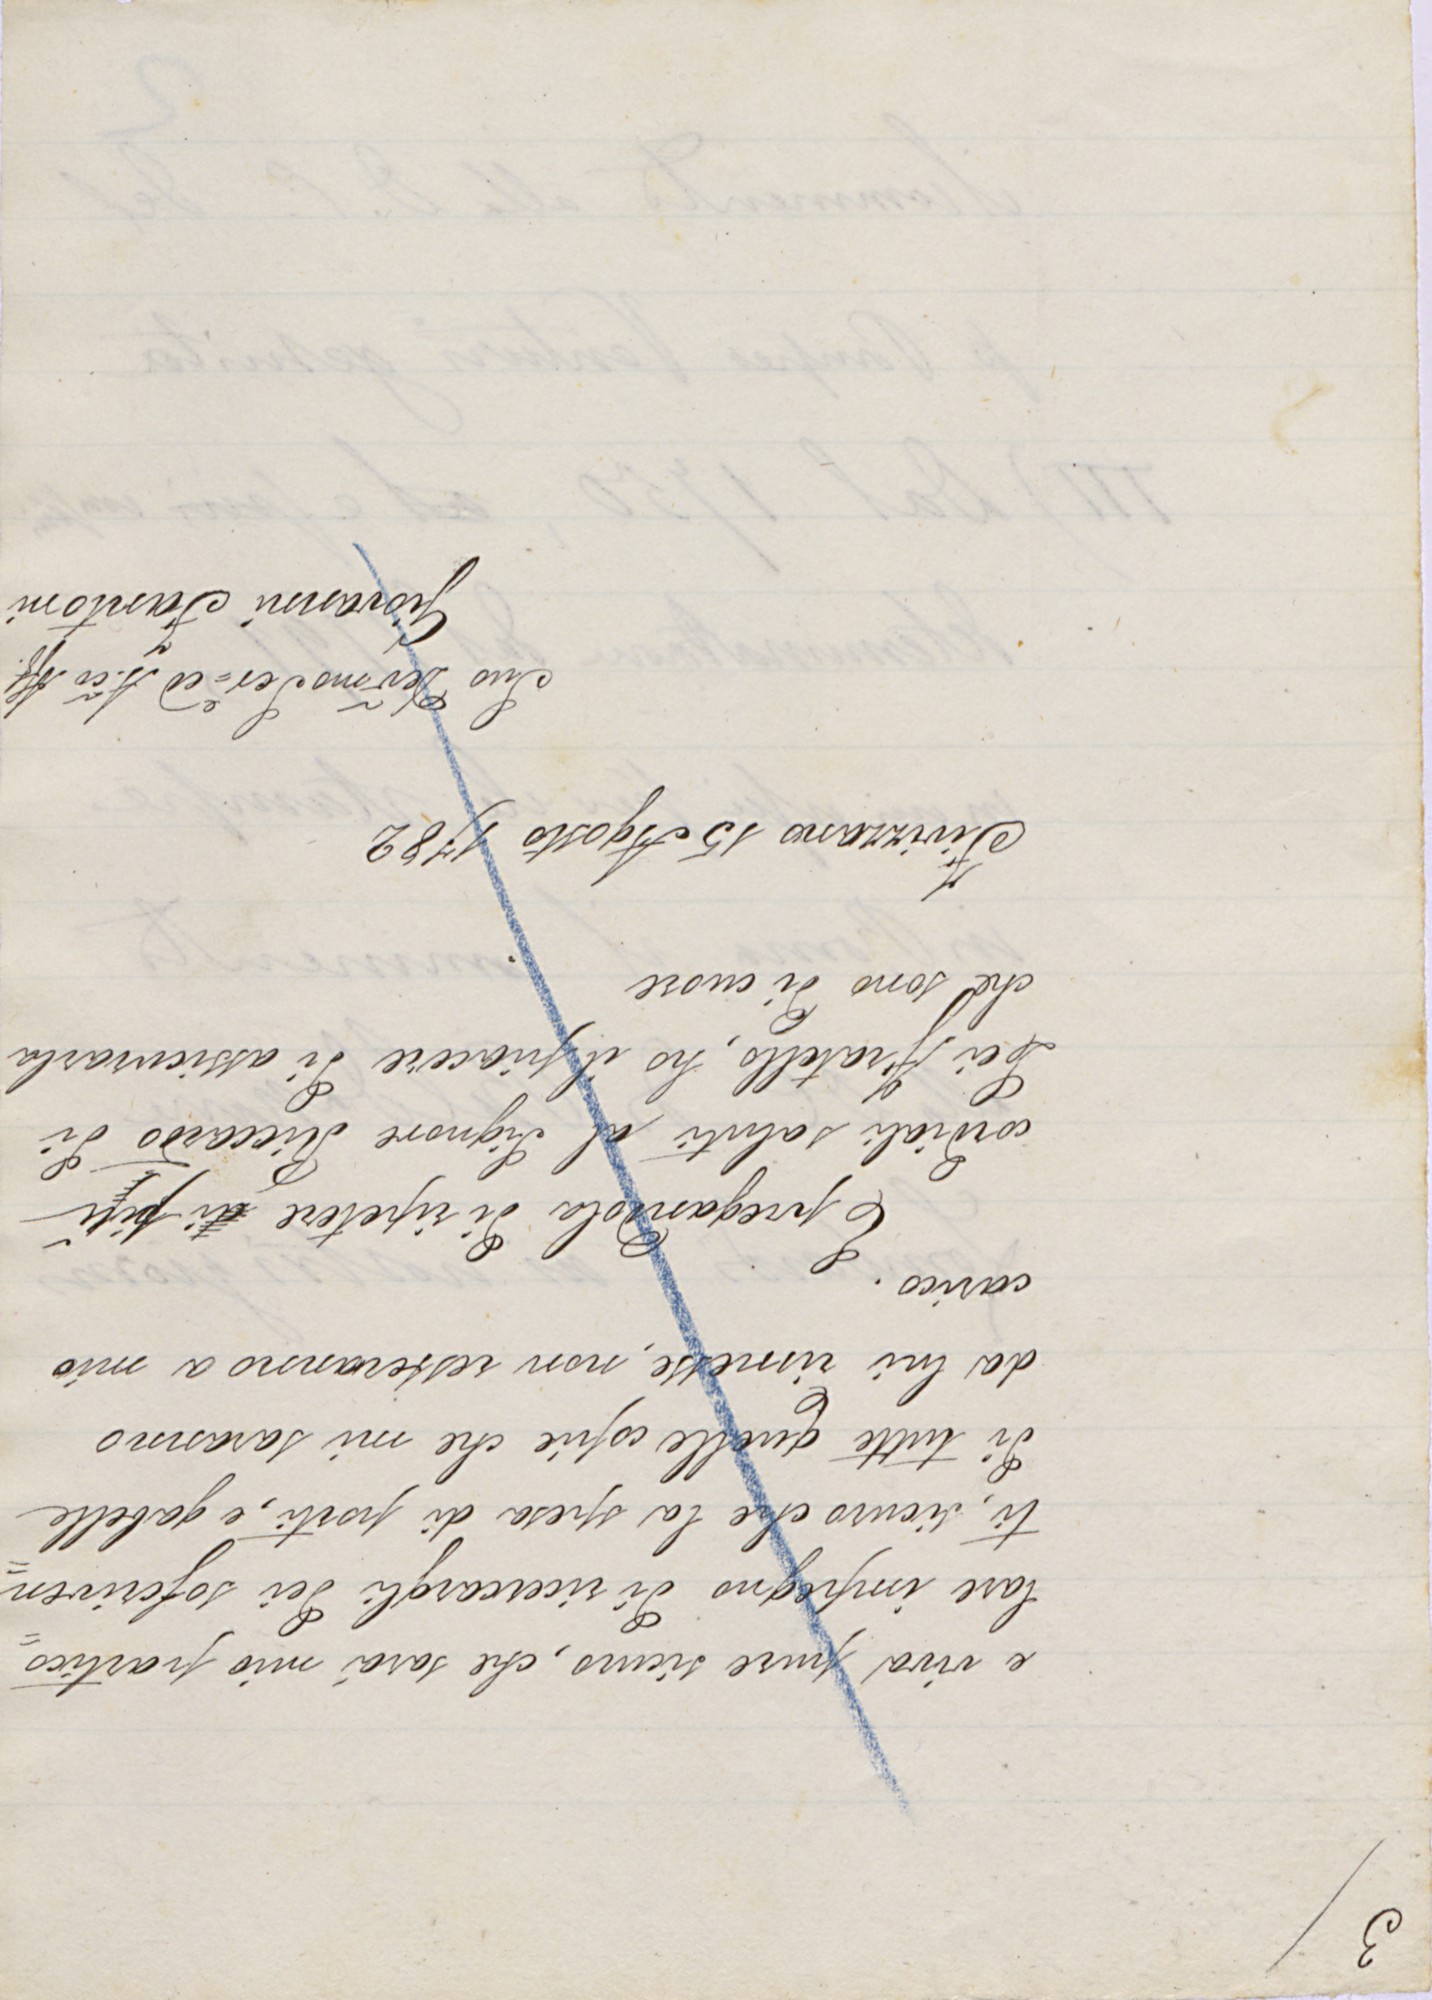 3/
e viva pure sicuro, che sarà mio partico=
lare impegno di ricercargli dei soscriven=
ti, sicuro che la spesa di porti, e gabelle
di tutte quelle copie che mi saranno
da lui rimesse, non resteranno a mio
carico.
E pregandola di ripetere i più
cordiali saluti al Signore Riccardo di
Lei Fratello, ho il piacere di assicurarla
che sono di cuore
Fivizzano 15 Agosto 1782
Suo Dev̄mo Ser=e
Giovanni Fantoni